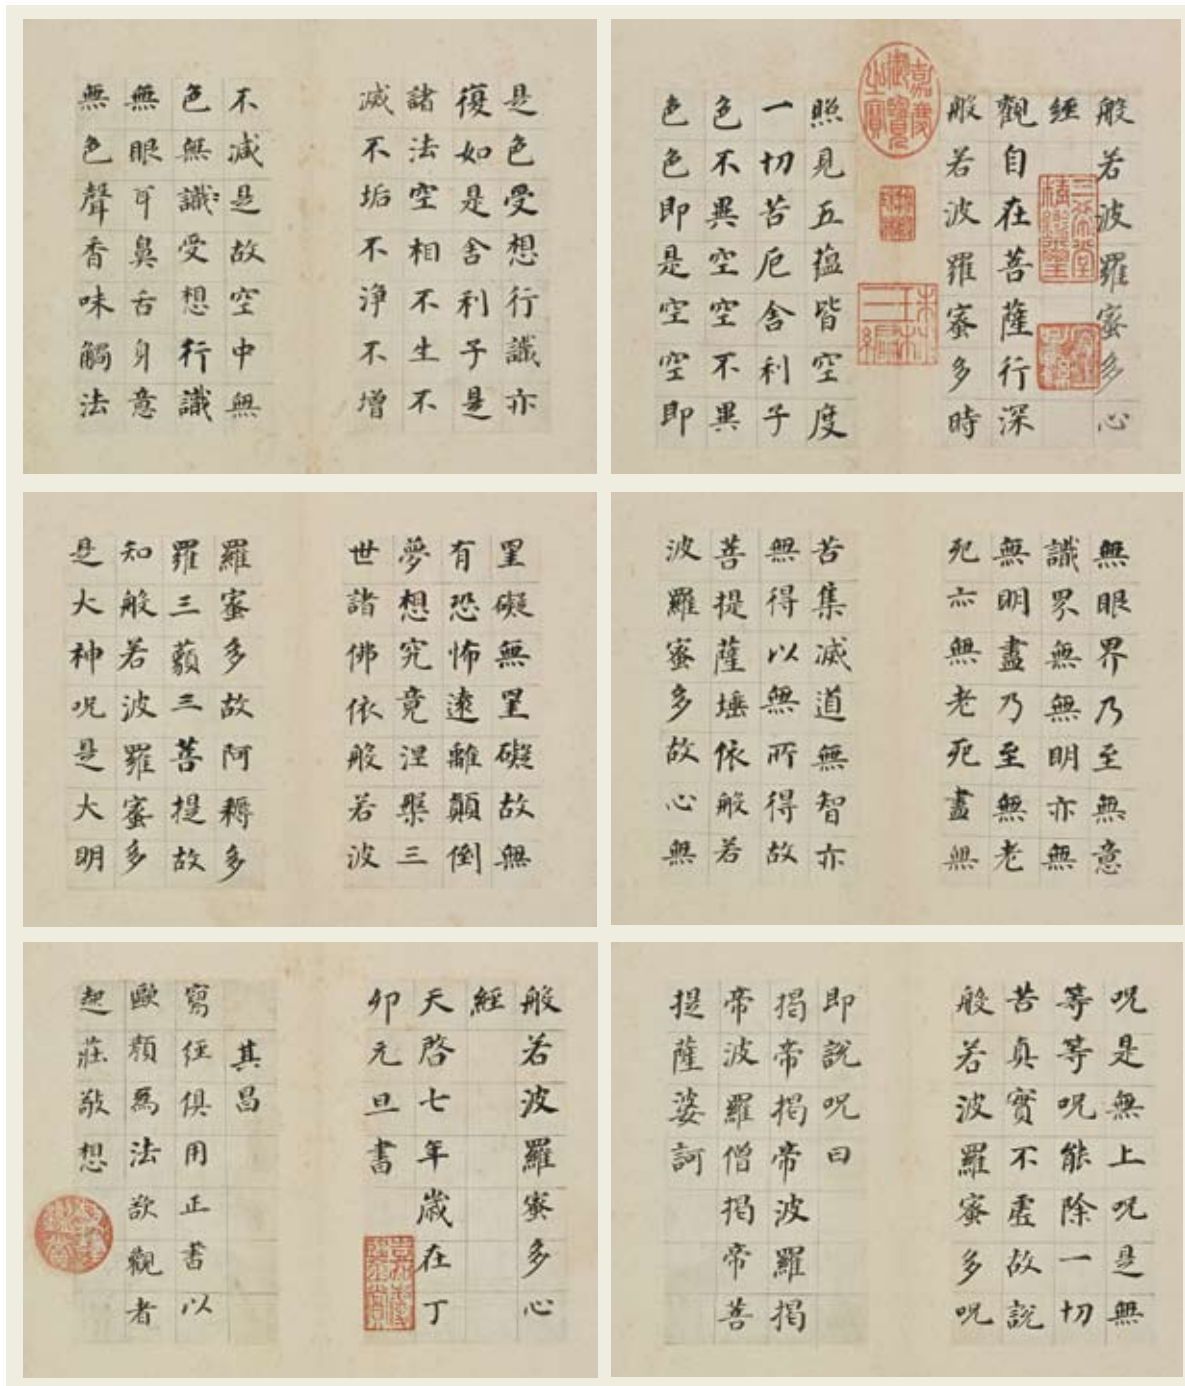 般若波羅蜜多心
經
觀自在菩薩行深
般若波羅蜜多時
嘉慶御覽之寶
三希堂精鑑璽
宜子孫
照見五蘊皆空度
一切苦厄舍利子
色不異空空不異
色色即是空空即
是色受想行識亦
復如是舍利子是
諸法空相不生不
滅不垢不淨不增
不減是故空中無
色無識受想行識
無眼耳鼻舌身意
無色聲香味觸法
無眼界乃至無意
識界無無明亦無
無明盡乃至無老
死亦無老死盡無
苦集滅道無智亦
無得以無所得故
菩提薩埵依般若
波羅蜜多故心無
罣礙無罣礙故無
有恐怖遠離顛倒
夢想究竟涅槃三
世諸佛依般若波
羅蜜多故阿耨多
羅三藐三菩提故
知般若波羅蜜多
是大神呪是大明
呪是無上呪是無
等等呪能除一切
苦真實不虛故說
般若波羅蜜多呪
即說呪曰
揭帝揭帝波羅揭
帝波羅僧揭帝菩
提薩婆訶
般若波羅蜜多心
經
天啓七年歲在丁
卯元旦書
其昌
寫經俱用正書以
歐顏爲法欲觀者
起莊敬想